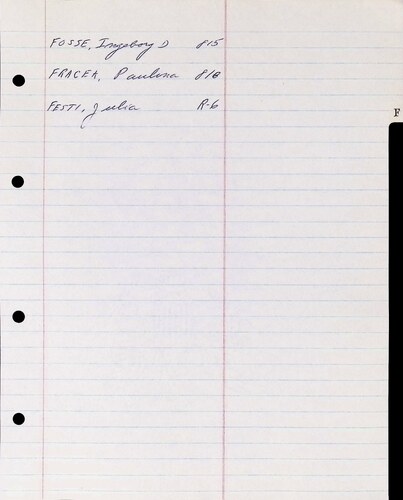 FOSSE, Ingeborg D 815
FRACEA, Paulina 818
FESTI, Julia R-6
F